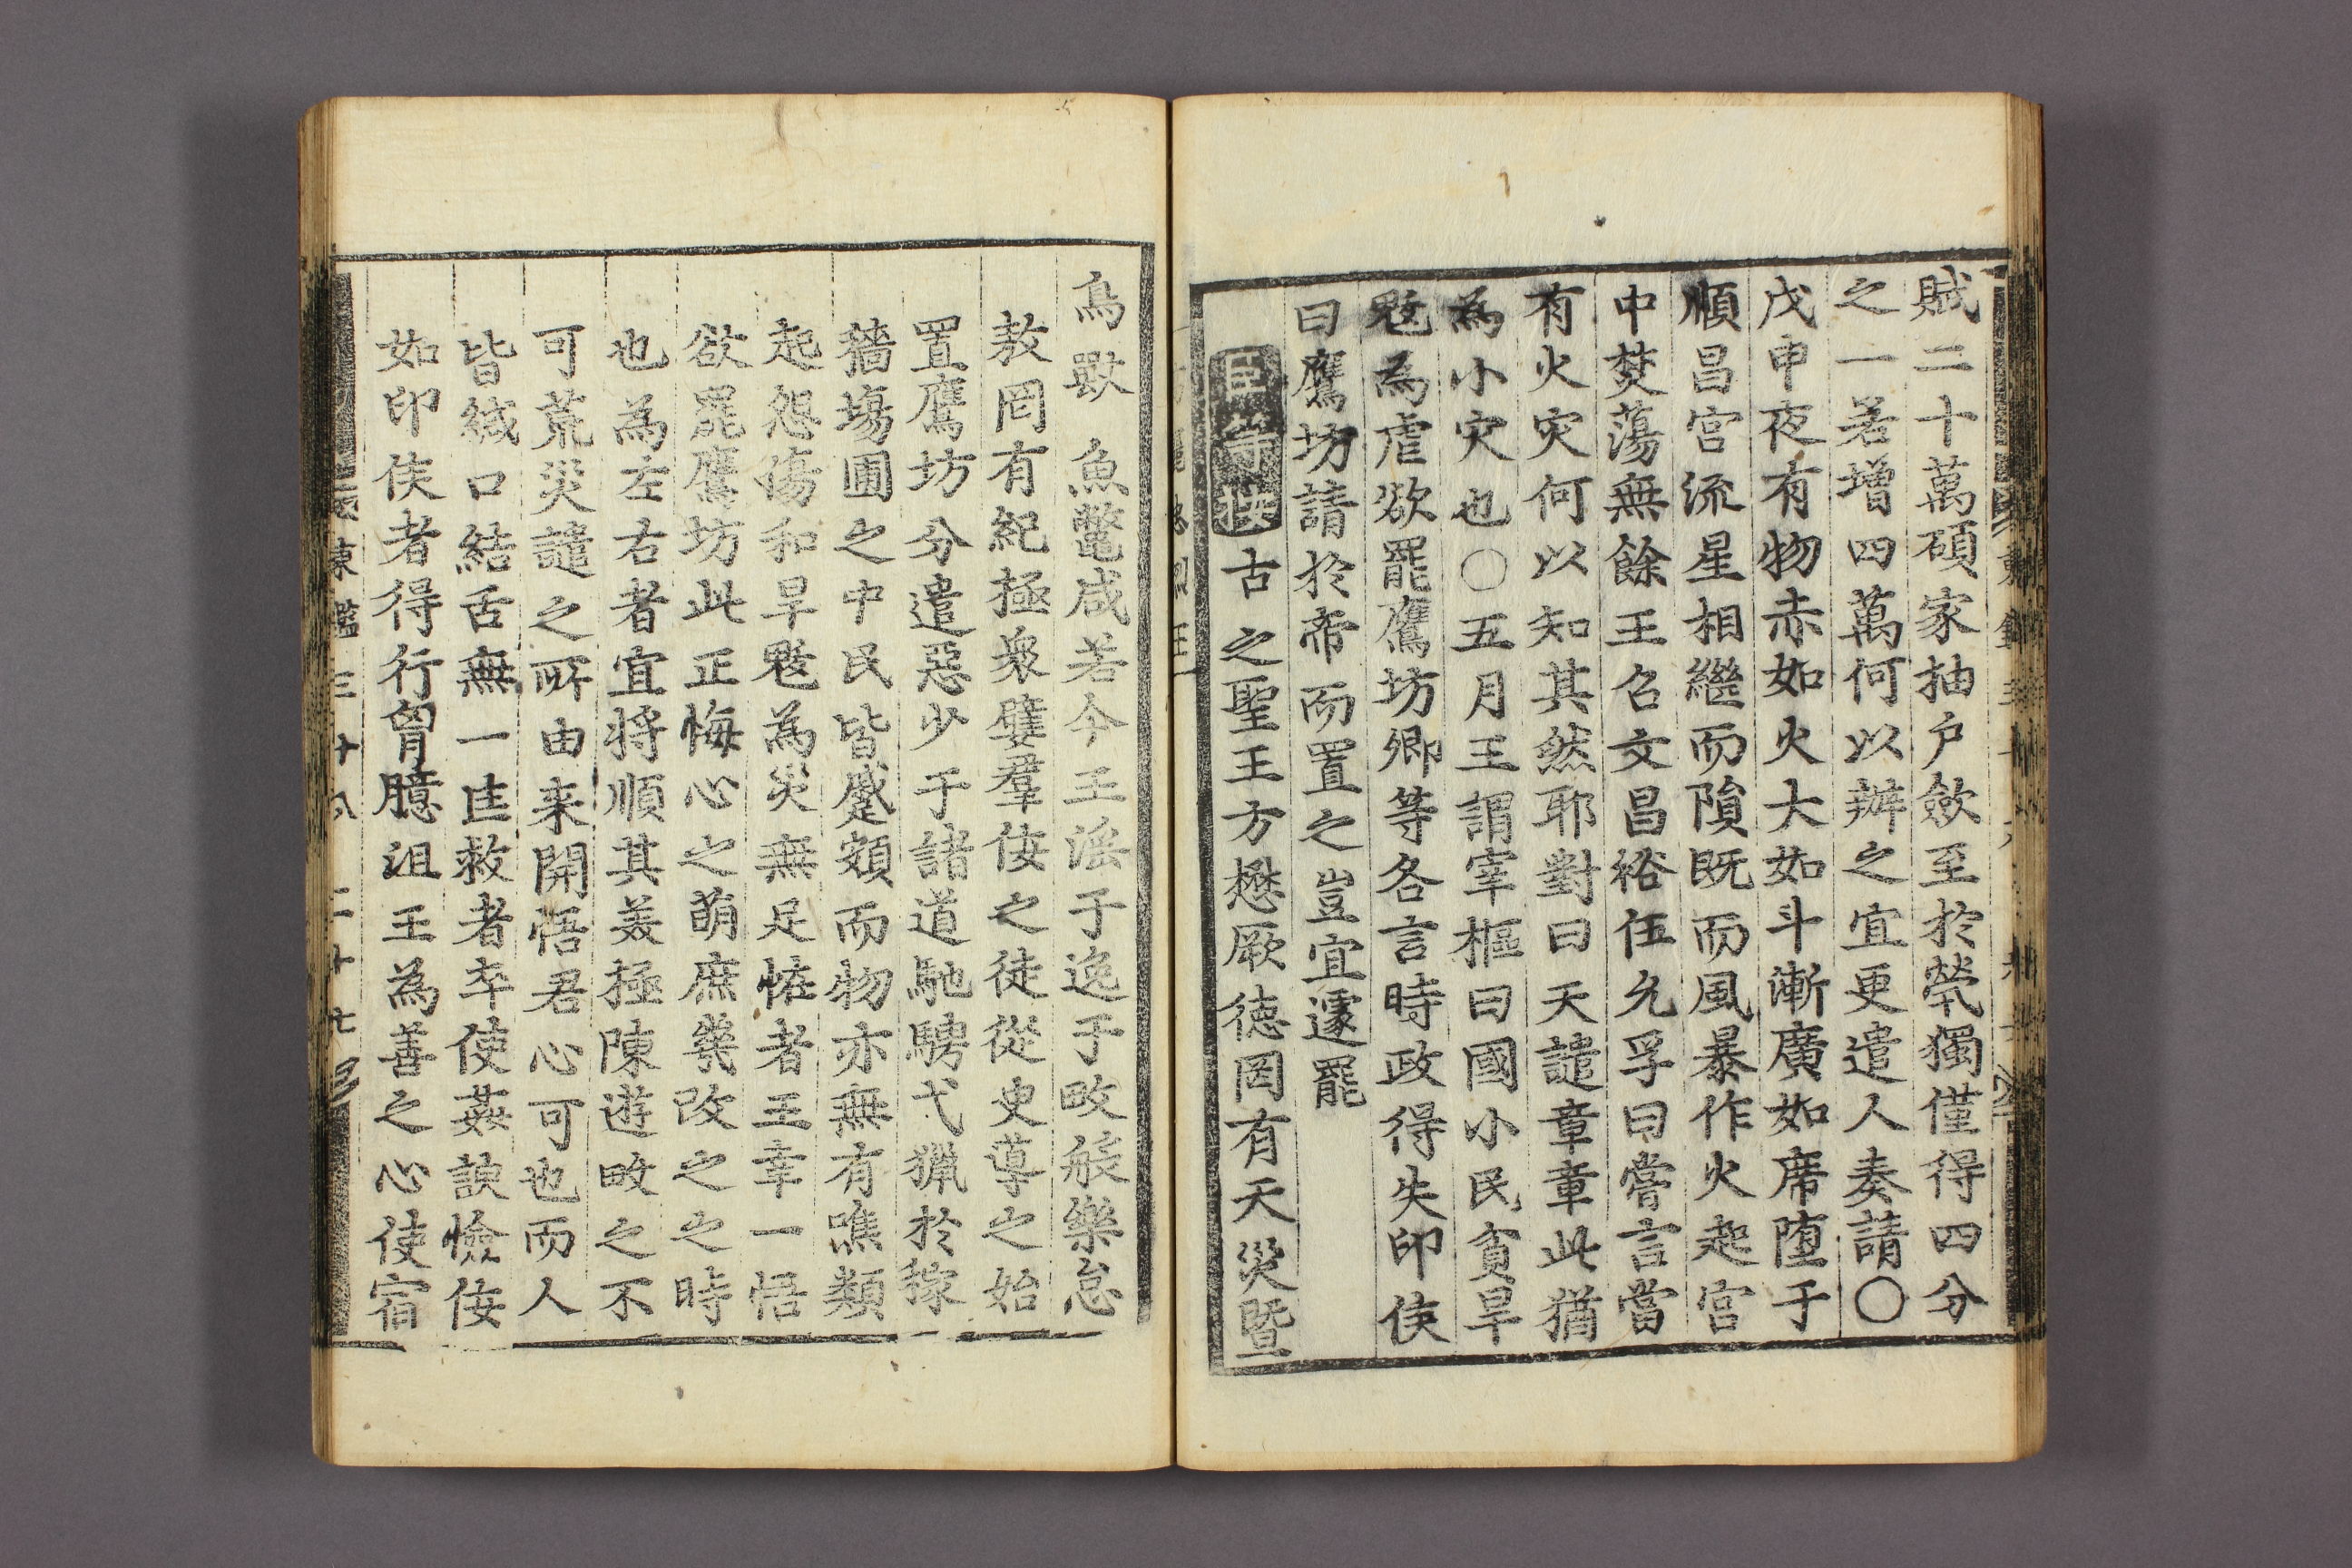 賊二十萬碩家抽戶斂至於㷀獨僅得四分
之一若增四萬何以辦之宜更遣人奏請〇
戊申夜有物赤如火大如斗漸廣如席墮于
順昌宮流星相繼而隕既而風暴作火起宮
中焚蕩無餘王召文昌裕伍允孚曰嘗言當
有火灾何以知其然耶對曰天譴章章此猶
為小灾也〇五月王謂宰樞曰國小民貧旱
魃為虐欲罷鷹坊卿等各言時政得失印侯
曰鷹坊請於帝而置之豈宜遽罷
臣等按古之聖王方懋厥德罔有天災暨
鳥獸魚鼈咸若今王滛于逸于畋般樂怠
敖罔有紀極衆嬖羣侫之徒從臾導之始
置鷹坊分遣惡少于諸道馳騁弋獵於稼
穡場圃之中民皆蹙頞而物亦無有噍類
起怨傷和旱魃為災無足恠者王幸一悟
欲罷鷹坊此正悔心之萌庶幾改之之時
也為左右者宜將順其美極陳遊畋之不
可荒災譴之所由来開悟君心可也而人
皆緘口結舌無一匡救者卒使姦諛憸侫
如印侯者得行胷臆沮王為善之心使宿
東鑑三十八 二十七